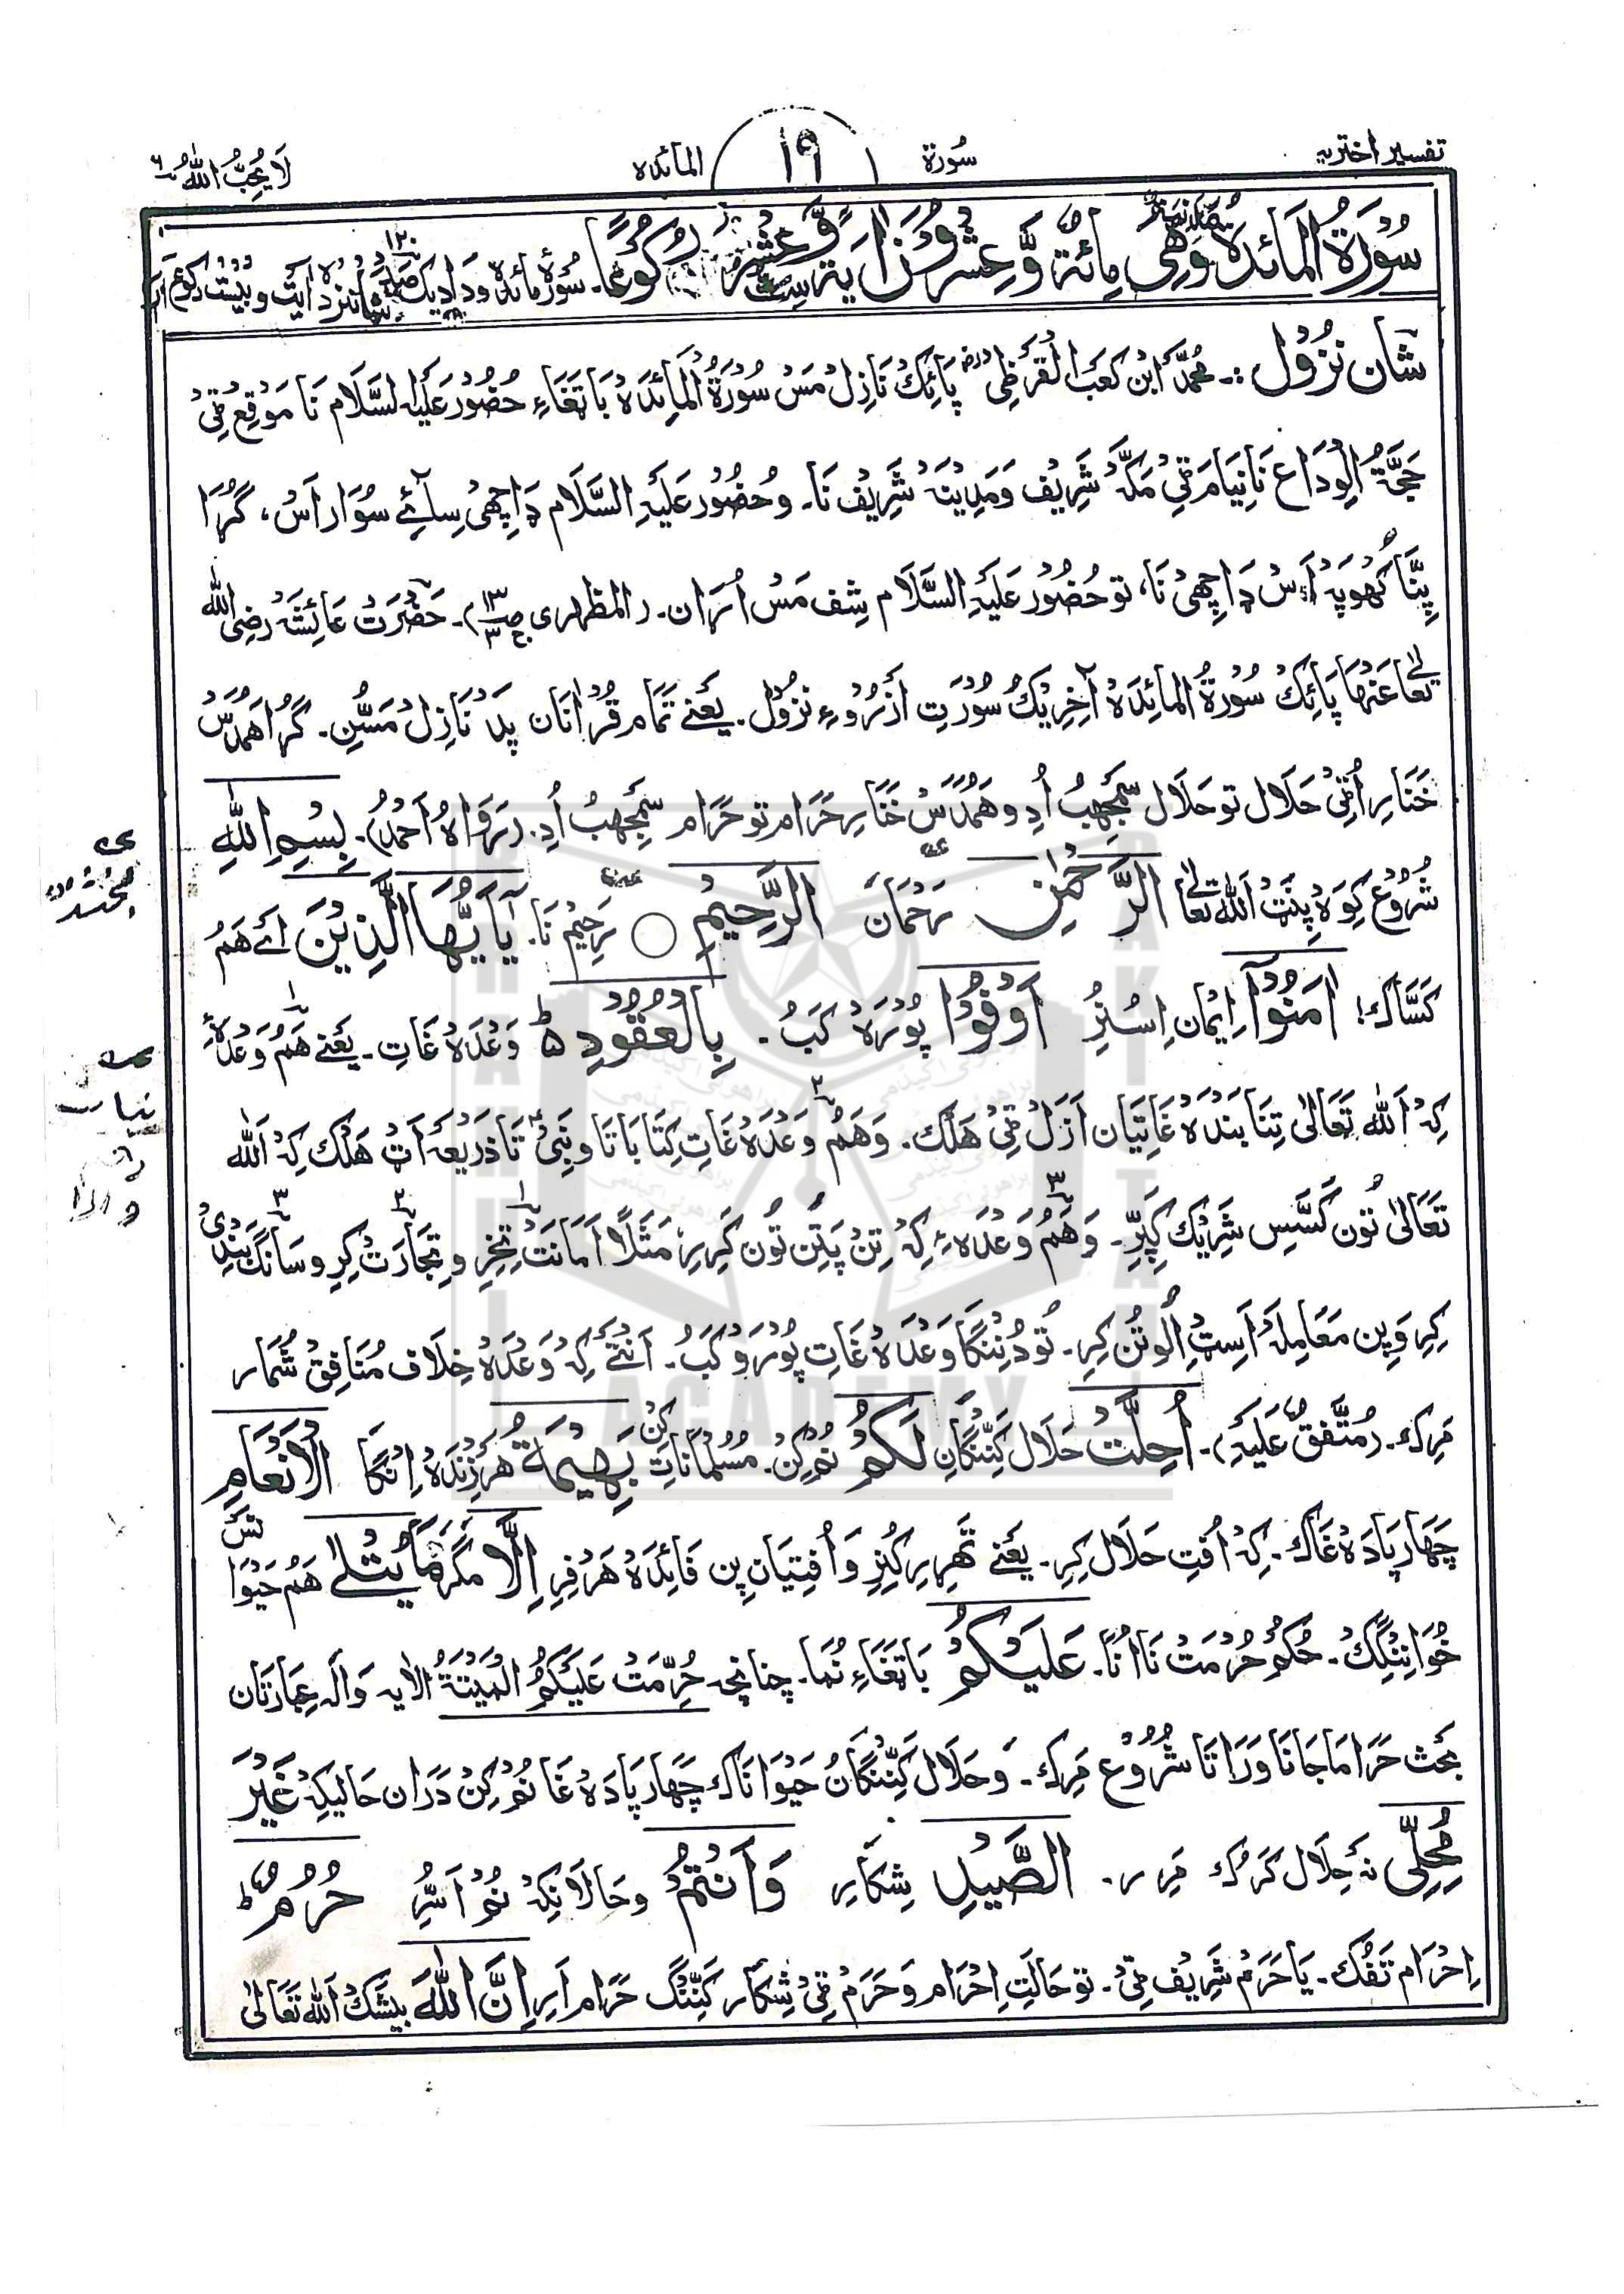 تفسیر اختریہ
سُورۃ
۱۹
المائدہ
لَا یُحِبُّ اللّٰہُ ۶
سُوْرَۃُ الْمَائِدَۃِ وَھِیَ مِائَۃٌ وَّعِشْرُوْنَ اٰیَۃً وَّ عِشْرُ رُکُوْعًا۔ سُوْرَۂ مائدہ وَدَا دِیک آیت و بِیْسْت رکوع
شَان نُزُوْل :۔ مُحَمَّد ابْن کَعَبَ الْقُرَظِی رض پَائِک نَازِل مَسْ سُوْرَۃُ الْمَائِدَہْ بَا تَغَاءِ حُضُوْر عَلَیْہِ السَّلَام نَا مَوْقِعْ ٹِیْ
حَجَّۃُ الْوِدَاع نَا نِیَام ٹِیْ مَکَّہْ شَرِیْف وَمَدِیْنَہْ شَرِیْف نَا۔ و حُضُوْر عَلَیْہِ السَّلَام ڈَاچِھیْ سِآئے سُوَار اَسْ، گُڑَا
پِنَّا کُھوپَہْ اَسْ ڈَاچِھیْ نَا، تو حُضُوْر عَلَیْہِ السَّلَام شِف مَسْ اُڑَان۔ (المظہری ص۱۳ ج۳)۔ حَضْرَتْ عَائِشَہْ رَضِیَ اللّٰہُ
تَعَالٰی عَنْہَا پَائِکْ سُوْرَۃُ الْمَائِدَہْ آخِرِیْکْ سُوْرَتِ اَزْرُوْءِ نُزُوْل۔ یَعْنِے تَمَام قُرْاٰنَان پَدْ نَازِل مَسُّنِ۔ گُڑا ھَمْدُسْ
خَنَارِ اُٹِیْ حَلَال تو حَلَال سَمْجِھبُ اُدِ و ھَمْدُسْ خَنَارِ حَرَام تو حَرَام سَمْجِھبُ اُدِ۔ (رَوَاہُ اَحْمَدُ)۔ بِسْمِ اللّٰہِ
شُرُوْع کِوَہْ پِنَتْ اللّٰہ تعالٰی الرَّحْمٰنِ رَحْمَان الرَّحِیْمِ ○ رَحِیْم نَا۔ یٰٓاَیُّھَا الَّذِیْنَ اَئے ھَمْ
کَسَّاک! اٰمَنُوْٓا اِیْمَان اِسُنُرِ اَوْفُوْا پُوْرَہْ کَبُ۔ بِالْعُقُوْدِ ط وَعْدَہْ غَاتِ۔ یَعْنِے ھَمْ وَعْدَہْ
کِہْ اَللّٰہ تَعَالٰی تِنَا بَنْدَہْ غَاتِیَان اَزَلْ ٹِیْ ھَلْک۔ وَھَمْ وَعْدَہْ غَاتِ کِتَابَاتَا و نَبِیْ تَا ذَرِیْعَہْ اَٹ ھَلْک کِہْ اَللّٰہ
تَعَالٰی تُون کَسَّسِ شَرِیْک کَپِرِ۔ وَھَمْ وَعْدَہ ءِ کِہْ تِنْ پَتِن تُون کَرِیرِ مَثَلًا اَمَانَتْ تِخِرِ و تِجَارَتْ کِرِ و سَانگ بَنْدِیْ
کِرِ وَ پِن مَعَامِلَہْ اَسِٹ اُلُوتُن کِرِ۔ تو دُنَّنْگَا وَعْدَہْ غَاتِ پُوْرَوْ کَبُ۔ اَنْتَے کِہْ وَعْدَہْ خِلَاف مُنَافِقْ شُمَار
مَرِک۔ (مُتَّفَقٌ عَلَیْہِ)۔ اُحِلَّتْ حَلَال کَنِّنْگَانِ لَکُمْ نُمْ کِنْ۔ مُسُلْمَانَاتِ کِنْ بَھِیْمَۃُ ھَرْ زِنْدَہْ اِنْگَا الْاَنْعَامِ
چَھَار پَادَہْ غَاک۔ کِہْ اُفِتِ حَلَال کِرِ۔ یَعْنِے تَھِرِیرِ کُنِرِ وَ اُفِتِیَان پِن فَائِدَہْ ھَرْفِرِ اِلَّا مَگَر مَا یُتْلٰی ھَمْ حَیْوَا تَسْ
خُوَانِنْگِکْ۔ حُکْم حُرْمَتْ نَا اُنَا۔ عَلَیْکُمْ بَا تَغَاءِ نُمَا۔ چنانچہ حُرِّمَتْ عَلَیْکُمُ الْمَیْتَۃُ الایہ وَالَہ عِبَارَتَان
بَحْث حَرَام اَجَانَا وَرَاتَا شُرُوْع مَرِک۔ وَحَلَال کَنِّنْگَانُ حَیْوَانَاک چَھَار پَادَہْ غَا نُمْ کِنْ دَرَان حَالِیکِہْ غَیْرَ
مُحِلِّی نَہ حَلَال کَرْک مَرِر۔ الصَّیْدِ شِکَار وَاَنْتُمْ وحَالَانِکِہْ نُمْ اَرِّ حُرُمٌ ط
اِحْرَام تَفُک۔ یَا حَرَم شَرِیْف ٹِیْ۔ تو حَالَتِ اِحْرَام وَ حَرَم ٹِیْ شِکَار کَنِّنْگ حَرَام اَرِ اِنَّ اللّٰہَ بیشَکْ اَللّٰہ تَعَالٰی
BRAHUI
ACADEMY
PAKISTAN